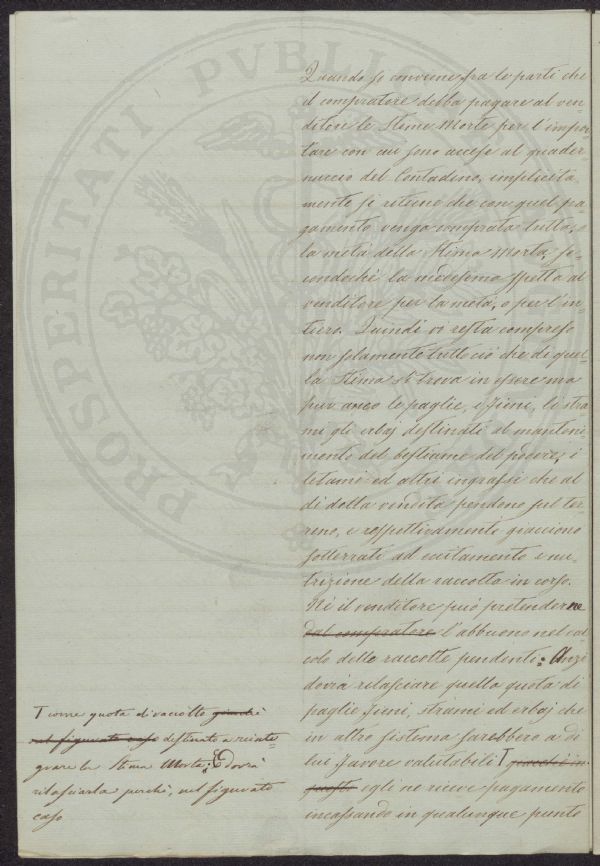 Quando si conviene fra le parti che
il compratore debba pagare al ven=
ditore le Stime Morte per l'impor=
tare con cui sono accese al quader=
nuccio del Contadino, implicita=
mente si ritiene che con quel pa=
gamento venga comprata tutta, o
la metà della Stima Morta, se=
condochè la medesima spetta al
venditore per la metà, o per l'in=
tiero. Quindi vi resta compreso
non solamente tutto ciò che di quel=
la Stima si trova in essere ma
pur anco le paglie, i fieni, li stra
mi gli erbaj destinati al manteni=
mento del bestiame del podere, i
letami ed altri ingrassi che al
dì della vendita pendono sul ter=
reno, e respettivamente giacciono
sotterrati ad eccitamento e nu=
trizione della raccolta in corso.
Nè il venditore può pretenderne
dal compratore l'abbuono nel cal
colo delle raccolte pendenti: Anzi
dovrà rilasciare quella quota di
paglie fieni, strami ed erbaj che
in altro sistema sarebbero a di
lui favore valutabili T giacchè in
questo egli ne riceve pagamento
incassando in qualunque punto
T come quota di raccolto giacchè
nel figurato caso destinato a reinte=
grare la Stima Morta; E dovrà
rilasciarla perchè, nel figurato
caso
PROSPERITATI PVBLIC